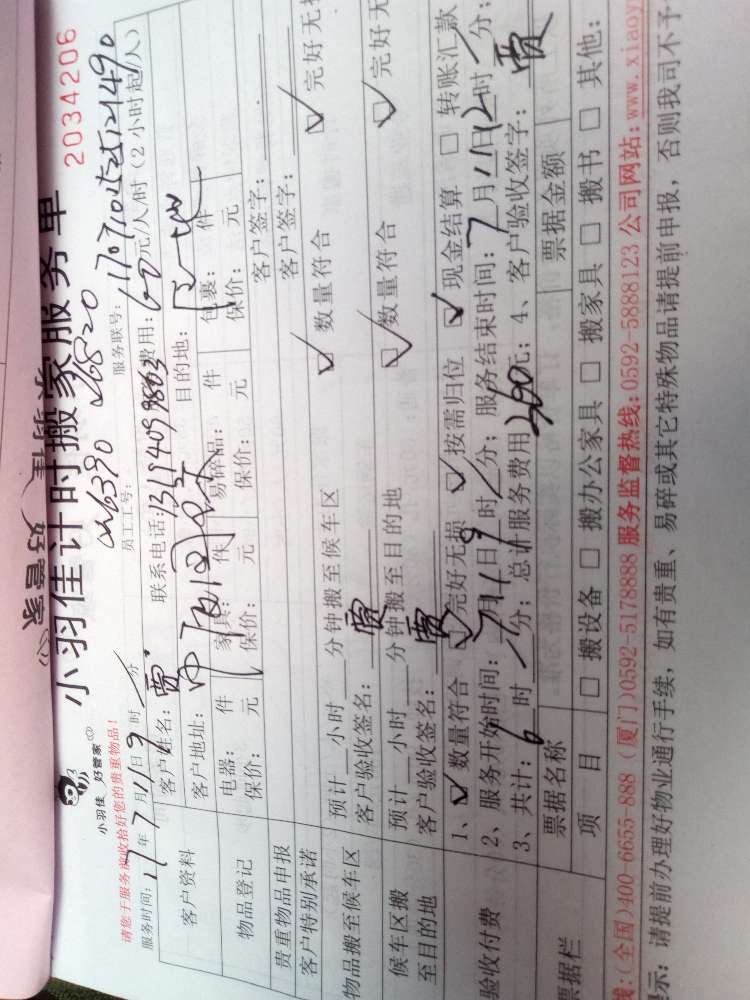 小羽佳 好管家
小羽佳计时搬家服务单 2034206
请您于服务前收拾好您的贵重物品!
员工工号: 服务联号:
服务时间: 17年7月11日9时 分
客户资料 客户姓名: 贾 联系电话: 费用: 60元/人/时(2小时起/人)
客户地址: 目的地:
物品登记 电器: 件 家具: 件 易碎品: 件 包裹: 件
保价: 元 保价: 元 保价: 元 保价: 元
贵重物品申报 客户签字:
客户特别承诺 客户签字:
物品搬至候车区 预计 小时 分钟搬至候车区 数量符合 完好无损
客户验收签名: 贾
候车区搬至目的地 预计 小时 分钟搬至目的地 数量符合 完好无
客户验收签名: 贾
验收付费 1、 数量符合 完好无损 按需归位 现金结算 转账汇款
2、服务开始时间: 7月11日9时 分; 服务结束时间: 7月11日12时 分;
3、共计: 6时 分; 总计服务费用 元; 4、客户验收签字: 贾
票据栏 票据名称 票据金额
项目 搬设备 搬办公家具 搬家具 搬书 其他:
线:(全国)400-6655-888 (厦门)0592-5178888 服务监督热线:0592-5888123 公司网站: www.xiaoyu
示: 请提前办理好物业通行手续, 如有贵重、易碎或其它特殊物品请提前申报, 否则我司不予